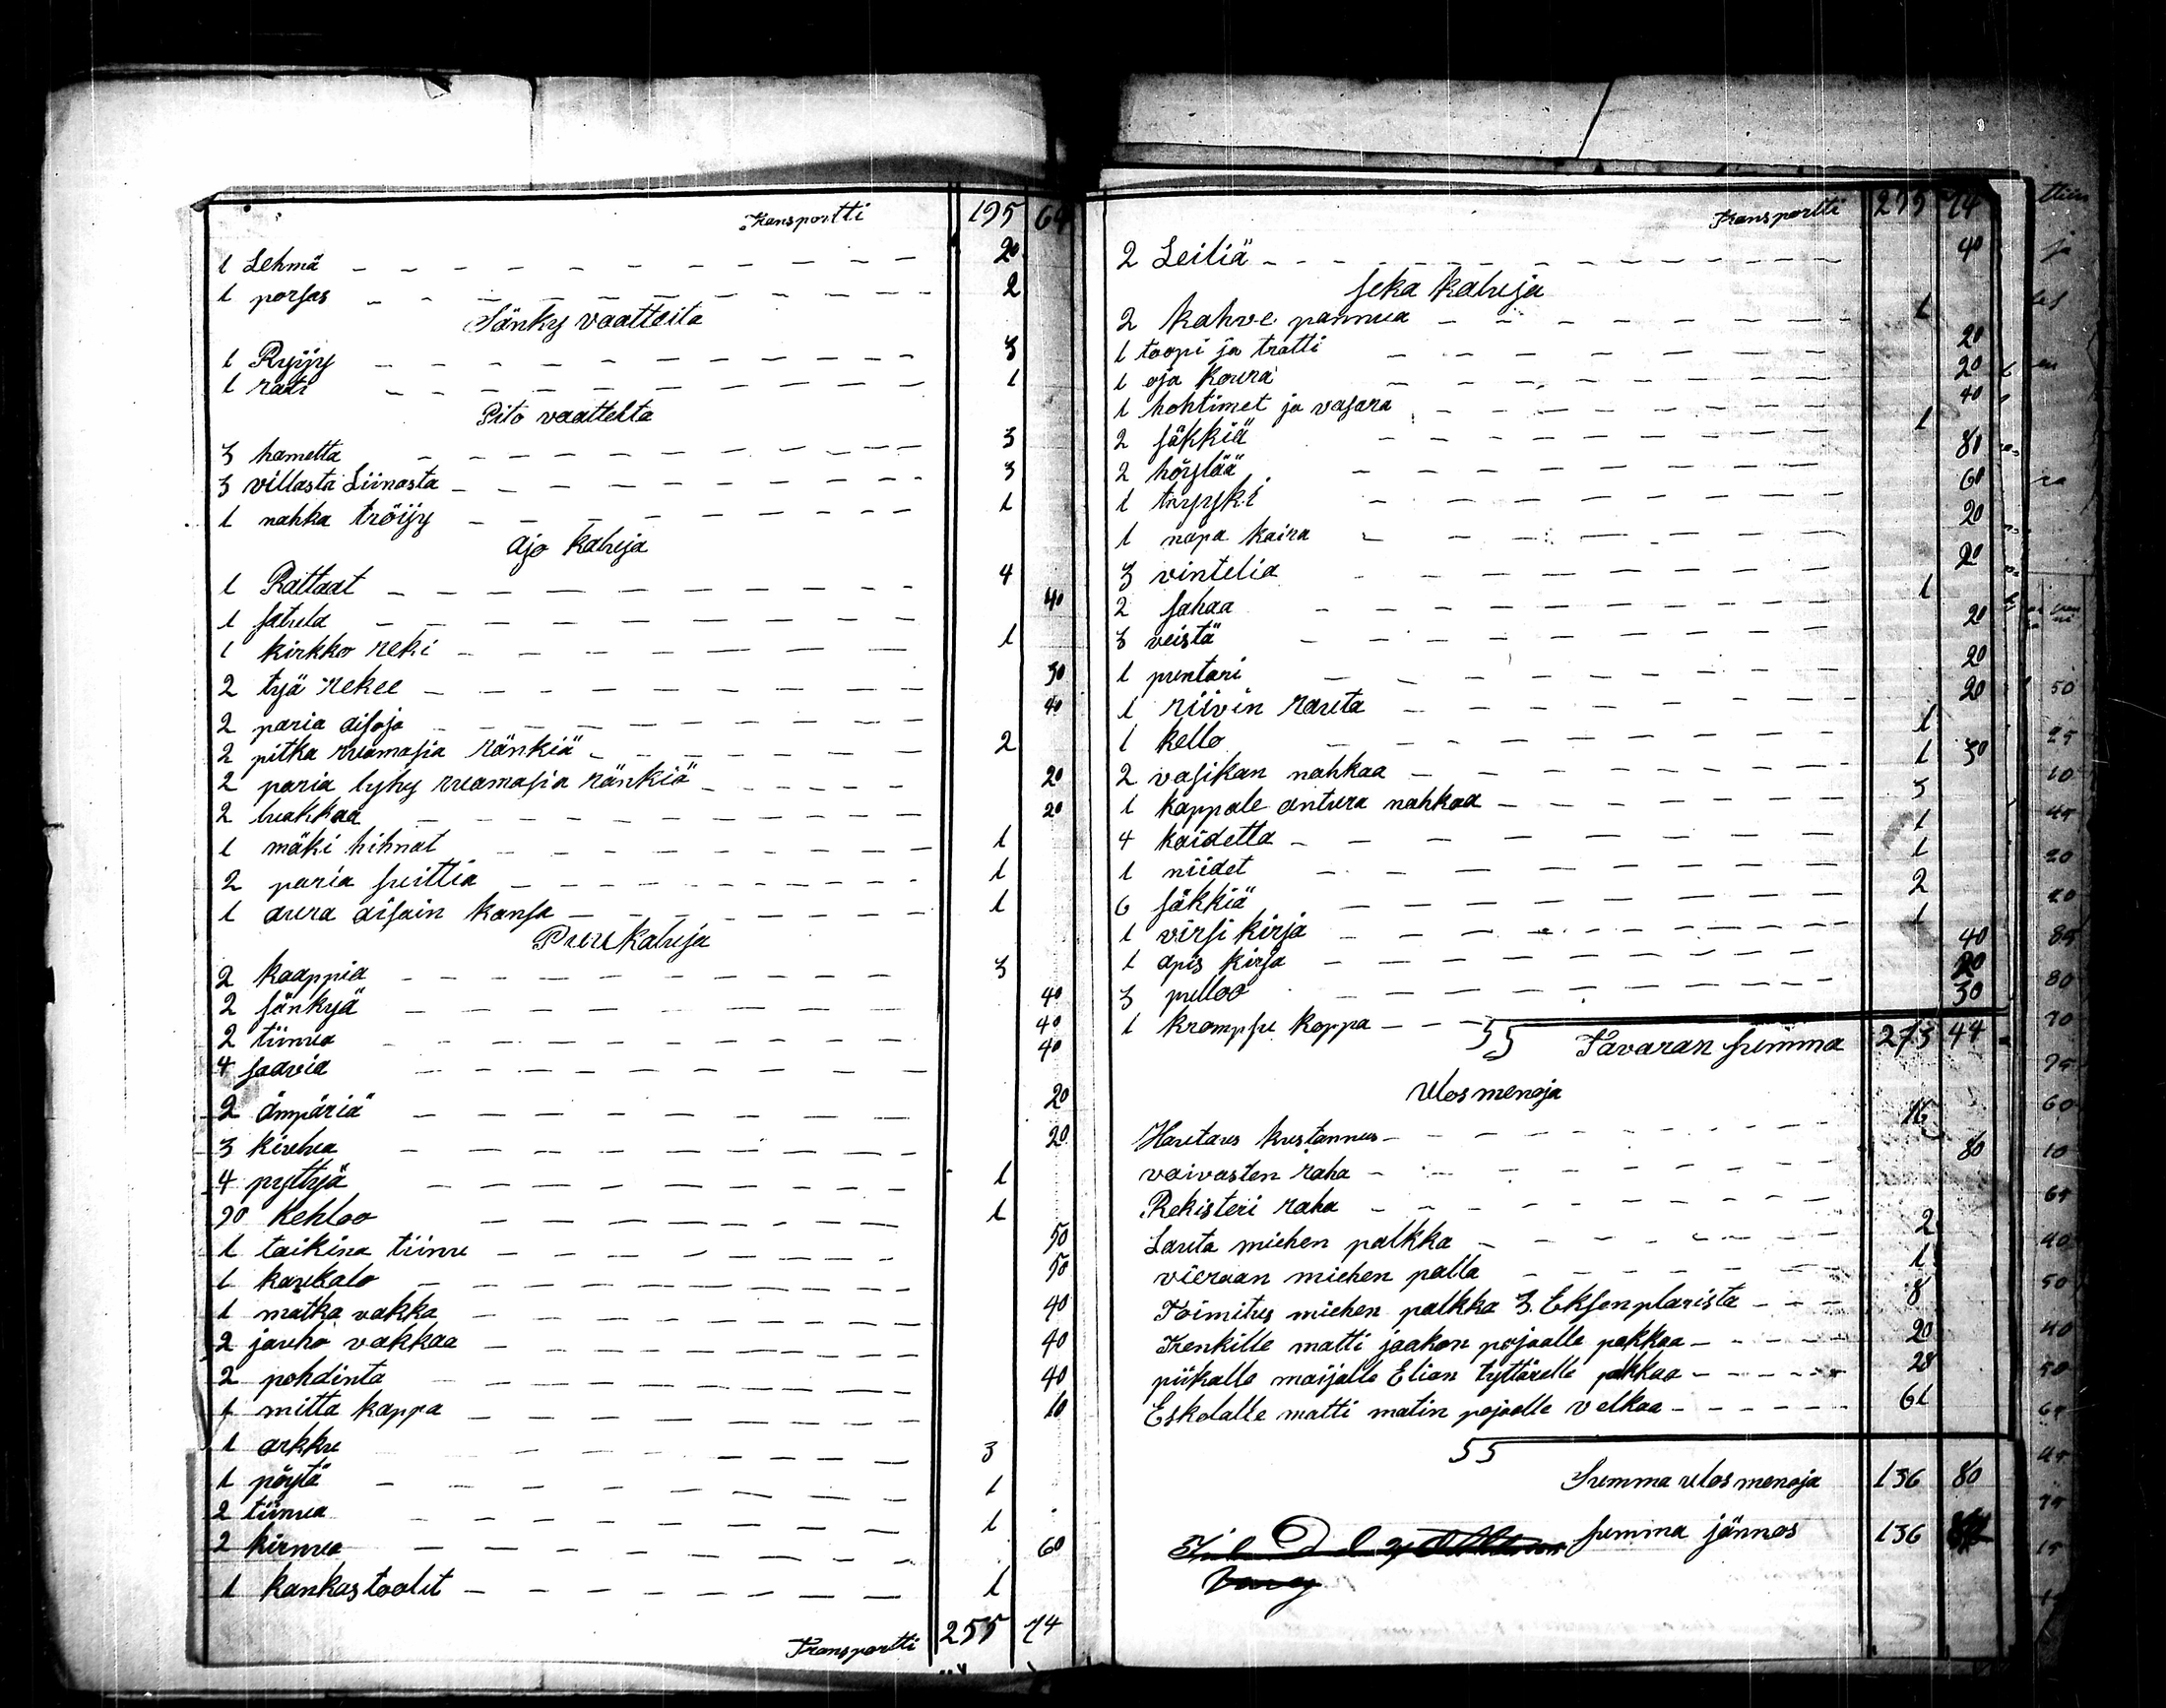 Transportti 195 64
1 Lehmä 20
1 porsas 2
Sänky vaatteita
1 Ryijy 3
1 rati 1
Pito vaatteita
3 hametta 3
3 villasta Liinasta 3
1 nahka tröijy 1
Ajo kaluja
1 Rattaat 4
1 satula 40
1 kirkko reki 1
2 työ rekee 50
2 paria aisoja 40
2 pitka ruamasia ränkiä 2
2 paria lyhy ruamasia ränkiä 20
2 luakkaa 20
1 mäki hihnat 1
2 paria suittia 1
1 aura aisain kansa 1
Puukaluja
2 kaappia 3
2 sänkyä 40
2 tiinua 40
4 saavia 40
2 ämpäriä 20
3 kiulua 20
4 pyttyä 1
90 kehloo 1
1 taikina tiinu 50
1 kaukalo 50
1 matka vakka 40
2 jauho vakkaa 40
2 pohdinta 40
1 mitta kappa 10
1 arkku 3
1 pöytä 1
2 tiinua 1
2 kirnua 60
1 kankastoolit 1
Transportti 255 74
Transportti 255 74
2 Leiliä 40
seka kaluja
2 kahve pannua 1
1 toopi ja tratti 20
1 oja koura 20
1 hohtimet ja vasara 40
2 säkkiä 1
2 höylää 80
1 tryyski 60
1 napa kaira 20
3 vintelia 20
2 sahaa 1
3 veistä 20
1 puntari 20
1 riivin rauta 20
1 kello 1
2 vasikan nahkaa 1 30
1 kappale antura nahkaa 3
4 kaidetta 1
1 niidet 1
6 säkkiä 2
1 virsi kirja 1
1 apis kirja 40
3 pulloo 20
1 krampsu koppa 30
55 Tavaran summa 273 44
Ulosmenoja
Hautaus kustannus 16
vaivasten raha 80
Rekisteri raha
Lauta miehen palkka 2
vieraan miehen palka 1
Toimitus miehen palkka 3. Eksenplarista 8
Renkille matti jaakon pojaalle palkkaa 20
piikalle maijalle Elian tyttärelle palkkaa 28
Eskolalle matti matin pojaalle velkaa 61
55
Summa ulosmenoja 136 80
summa jännös 136